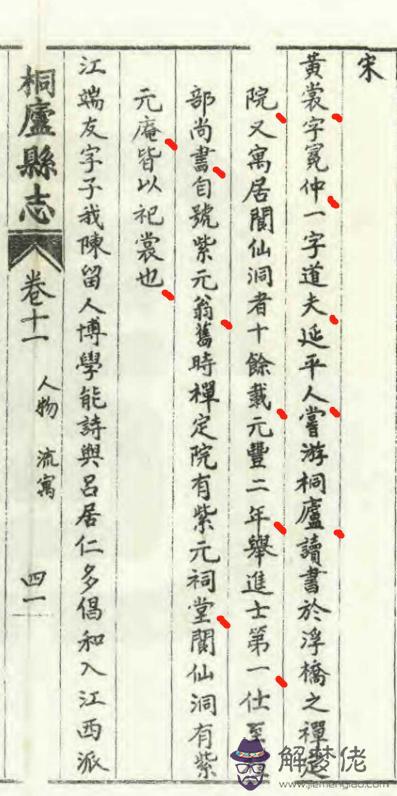 宋
黃裳字冕仲一字道夫延平人嘗游桐廬讀書於浮橋之禪定
院又寓居閬仙洞者十餘載元豐二年舉進士第一仕至
部尚書自號紫元翁舊時禪定院有紫元祠堂閬仙洞有紫
元庵皆以祀裳也
江端友字子我陳留人博學能詩與呂居仁多倡和入江西派
桐廬縣志
卷十一
人物 流寓
四一
解梦佬
www.jiemenglao.com